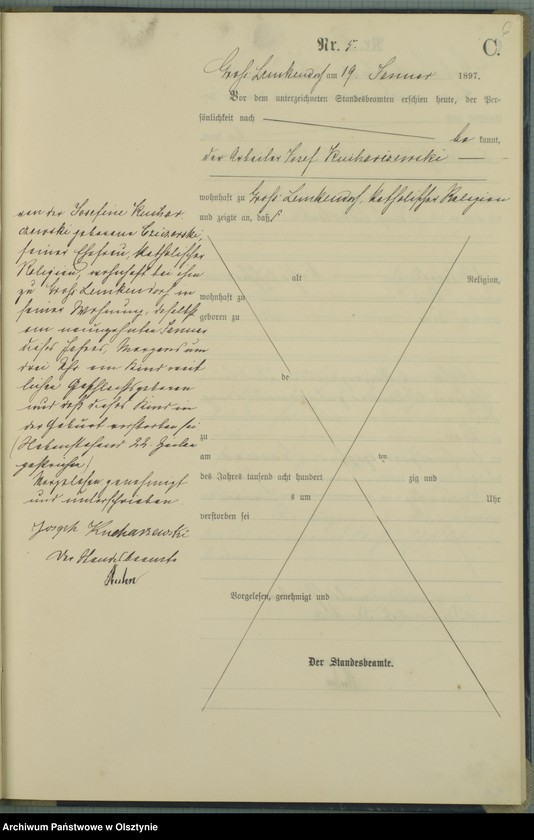 6
Nr. 5.
C.
Groß Lemkendorf am 19 Januar 1897.
Vor dem unterzeichneten Standesbeamten erschien heute, der Per-
sönlichkeit nach
be kannt,
der Arbeiter Josef Kucharzewski
wohnhaft zu Groß Lemkendorf, katholischer Religion
und zeigte an, daß
von der Josefine Kuchar
zewski geborene
seiner Ehefrau, katholischer
Religion, wohnhaft bei ihm
zu Groß Lemkendorf in
seiner Wohnung, daselbst
am neunzehnten Januar
dieses Jahres, Morgens um
drei Uhr ein Kind weib
lichen Geschlechts geboren
und daß dieses Kind in
der Geburt verstorben sei
(Nebenstehend 22 Zeilen
gestrichen)
Vorgelesen, genehmigt
und unterschrieben
Joseph Kucharzewski
Der Standesbeamte
alt
Religion,
wohnhaft zu
geboren zu
de
zu
am
ten
des Jahres tausend acht hundert
zig und
s um
Uhr
verstorben sei
Vorgelesen, genehmigt und
Der Standesbeamte.
Archiwum Państwowe w Olsztynie